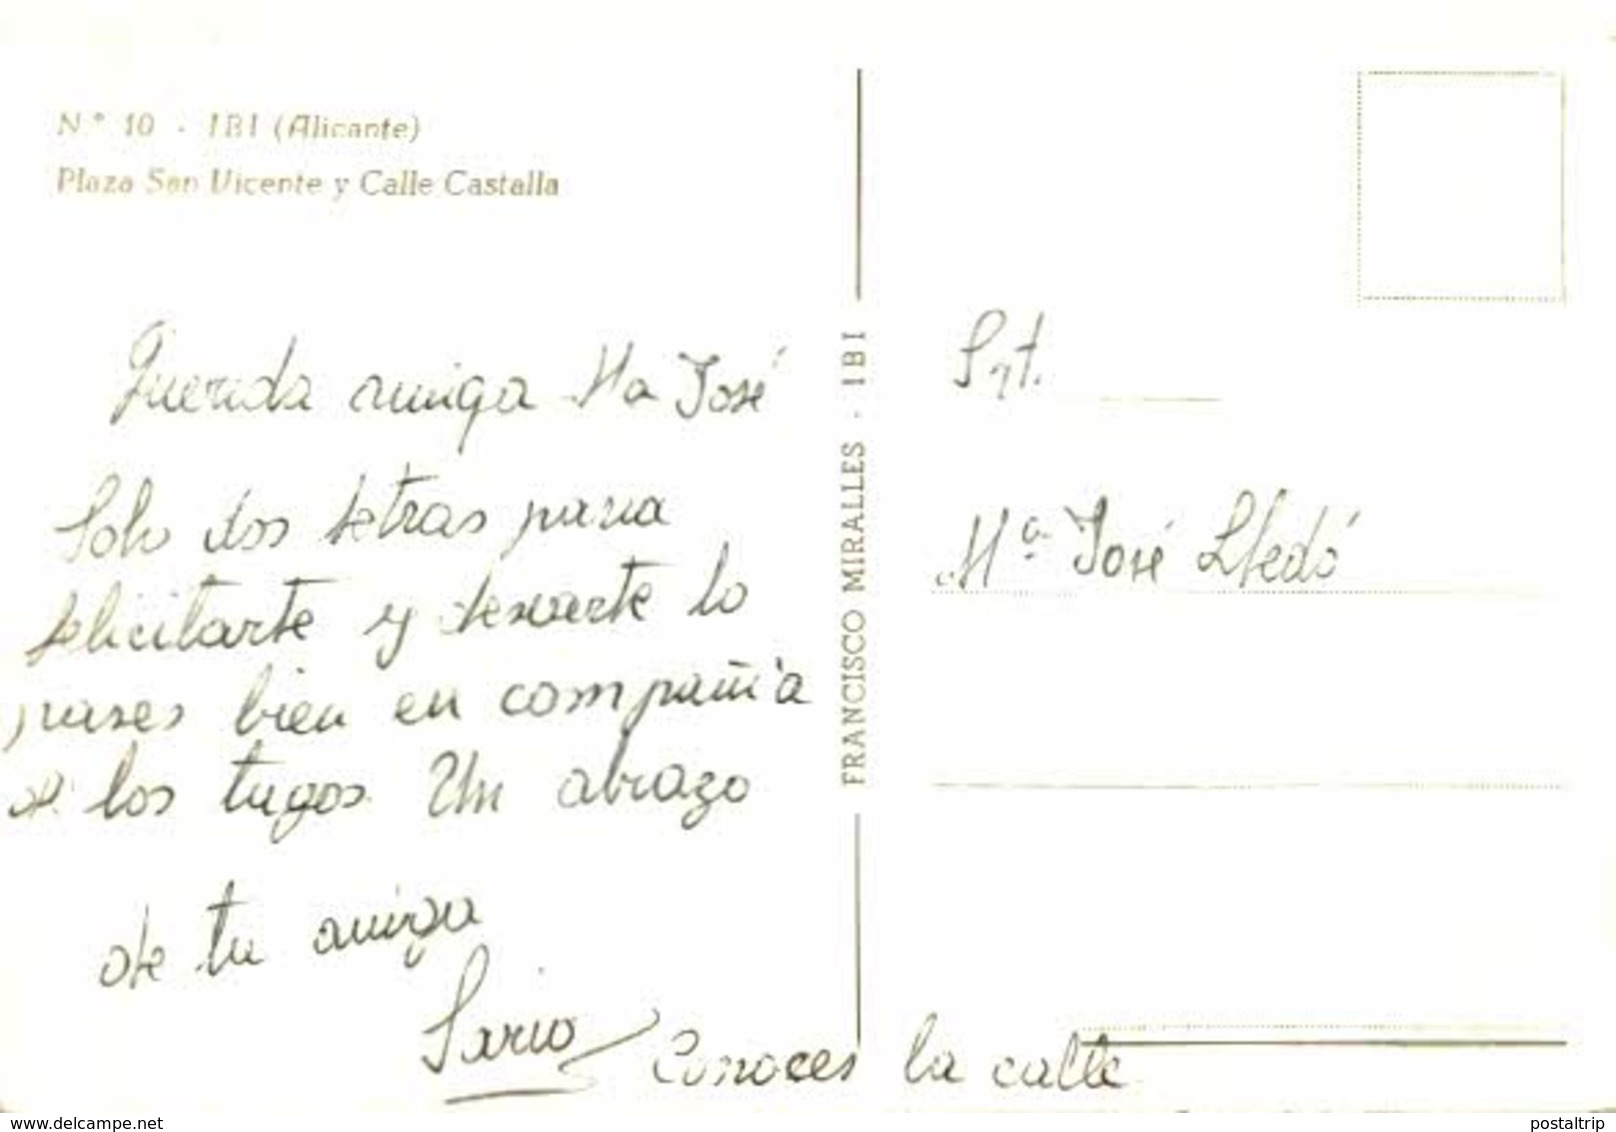 N.º 10 - IBI (Alicante)
Plaza San Vicente y Calle Castalla
Querida amiga Ma José
Solo dos letras para
felicitarte y desearte lo
pases bien en compañia
de los tuyos. Un abrazo
de tu amiga
Sario
Conoces la calle
FRANCISCO MIRALLES - IBI
Srt.
Mª José Lledó
www.delcampe.net
postaltrip